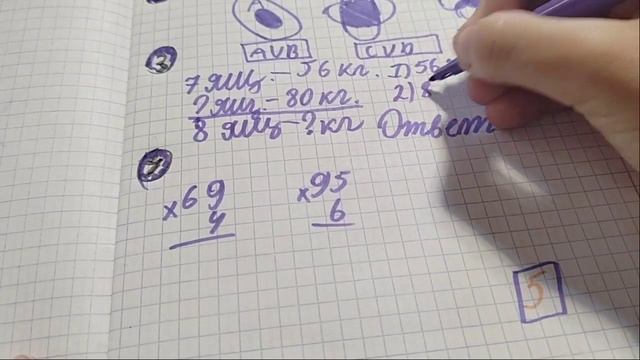 AVB CVD
3
7 ящ. – 56 кг. 1) 56:
? ящ. – 80 кг. 2) 8
8 ящ – ? кг Ответ
4
×69 ×95
4 6
5